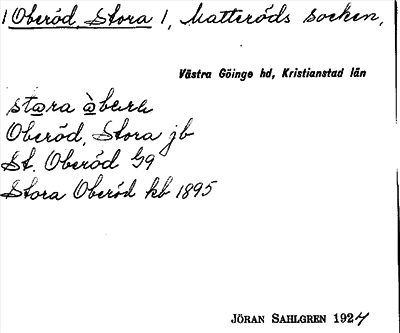 1 Oberöd, Stora 1, Matteröds socken,
Västra Göinge hd, Kristianstad län
stora
Oberöd, Stora jb
St. Oberöd G9
Stora Oberöd kb 1895
JÖRAN SAHLGREN 1924